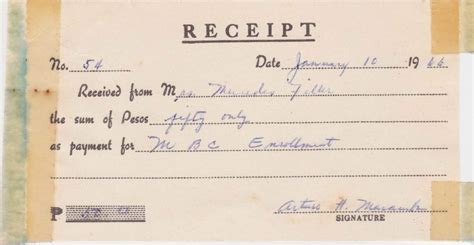 RECEIPT
No. 54 Date January 10 1966
Received from Mrs. Mercedes
the sum of Pesos fifty only
as payment for M B C Enrollment
P 50
Arturo H.
SIGNATURE